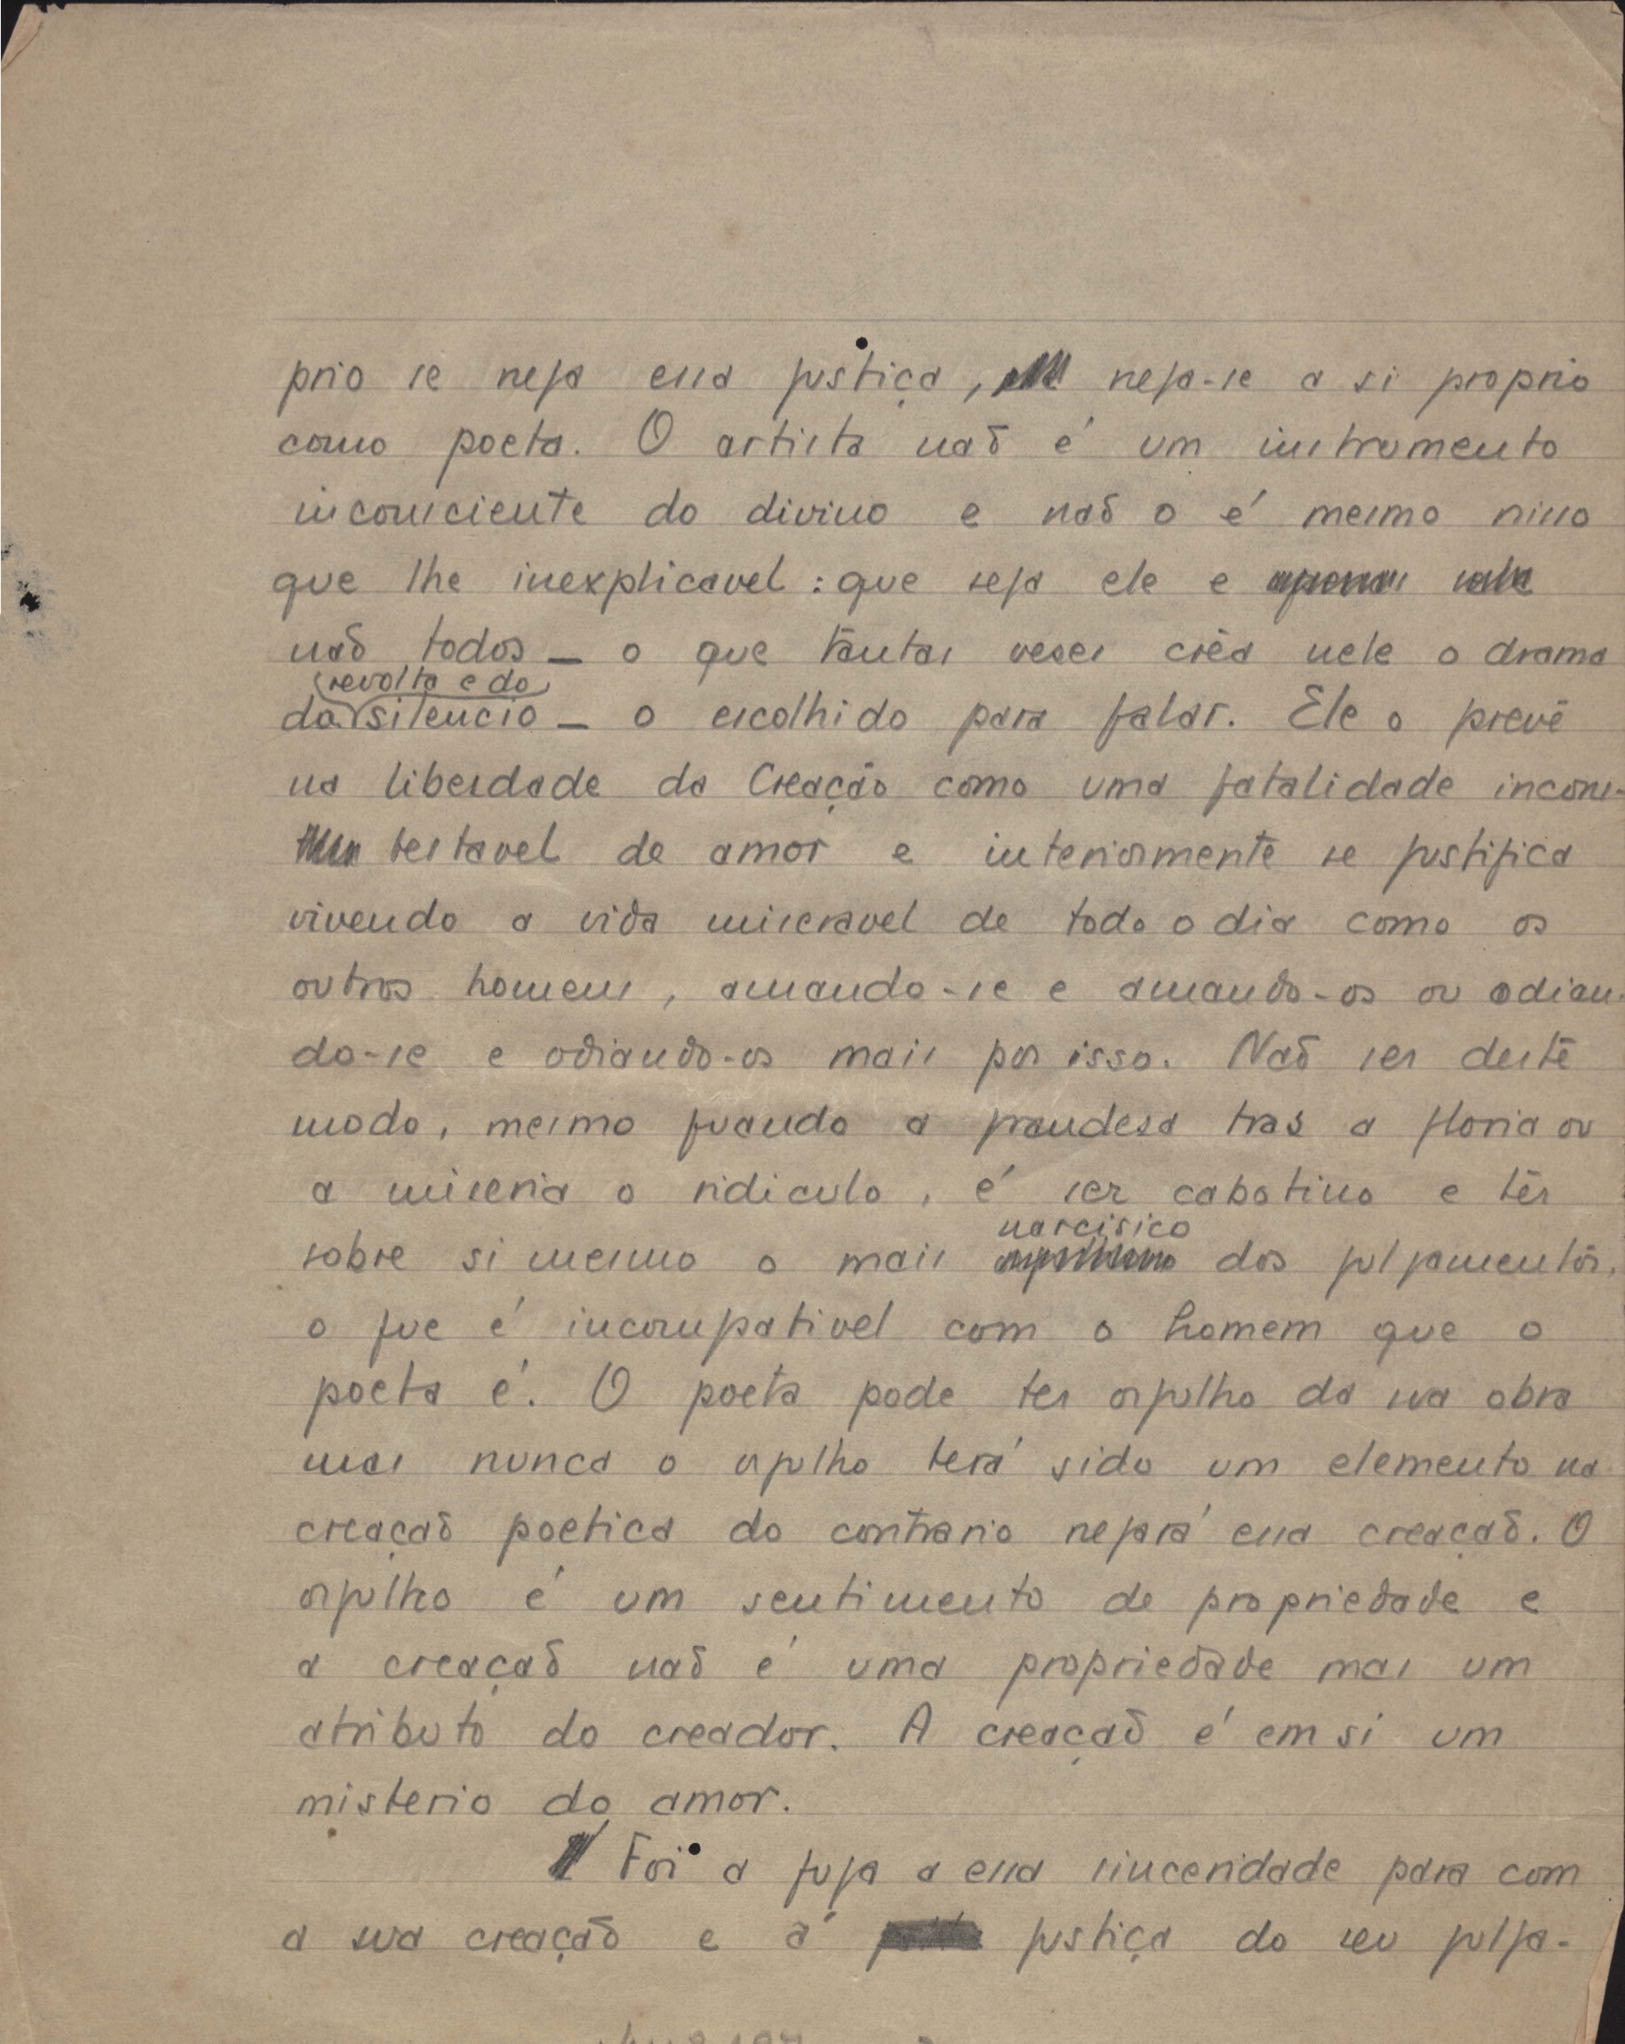 prio se nega essa justiça, nega-se a si proprio
como poeta. O artista não é um instrumento
inconsciente do divino e não o é mesmo nisso
que lhe inexplicavel: que seja ele e
não todos — o que tantas veses créa nele o drama
revolta e do
da silencio — o escolhido para falar. Ele o prevê
na liberdade da Creação como uma fatalidade incons-
testavel de amor e interiormente se justifica
vivendo a vida miseravel de todo o dia como os
outros homens, amando-se e amando-os ou odian-
do-se e odiando-os mais por isso. Não ser deste
modo, mesmo quando a grandesa tras a gloria ou
a miseria o ridiculo, é ser cabotino e ter
narcisico
sobre si mesmo o mais dos julgamentos,
o que é incompativel com o homem que o
poeta é. O poeta pode ter orgulho da sua obra
mas nunca o orgulho terá sido um elemento na
creação poetica do contrario negará essa creação. O
orgulho é um sentimento de propriedade e
a creação não é uma propriedade mas um
atributo do creador. A creação é em si um
misterio do amor.
Foi a fuga a essa sinceridade para com
a sua creação e á justiça do seu julga-